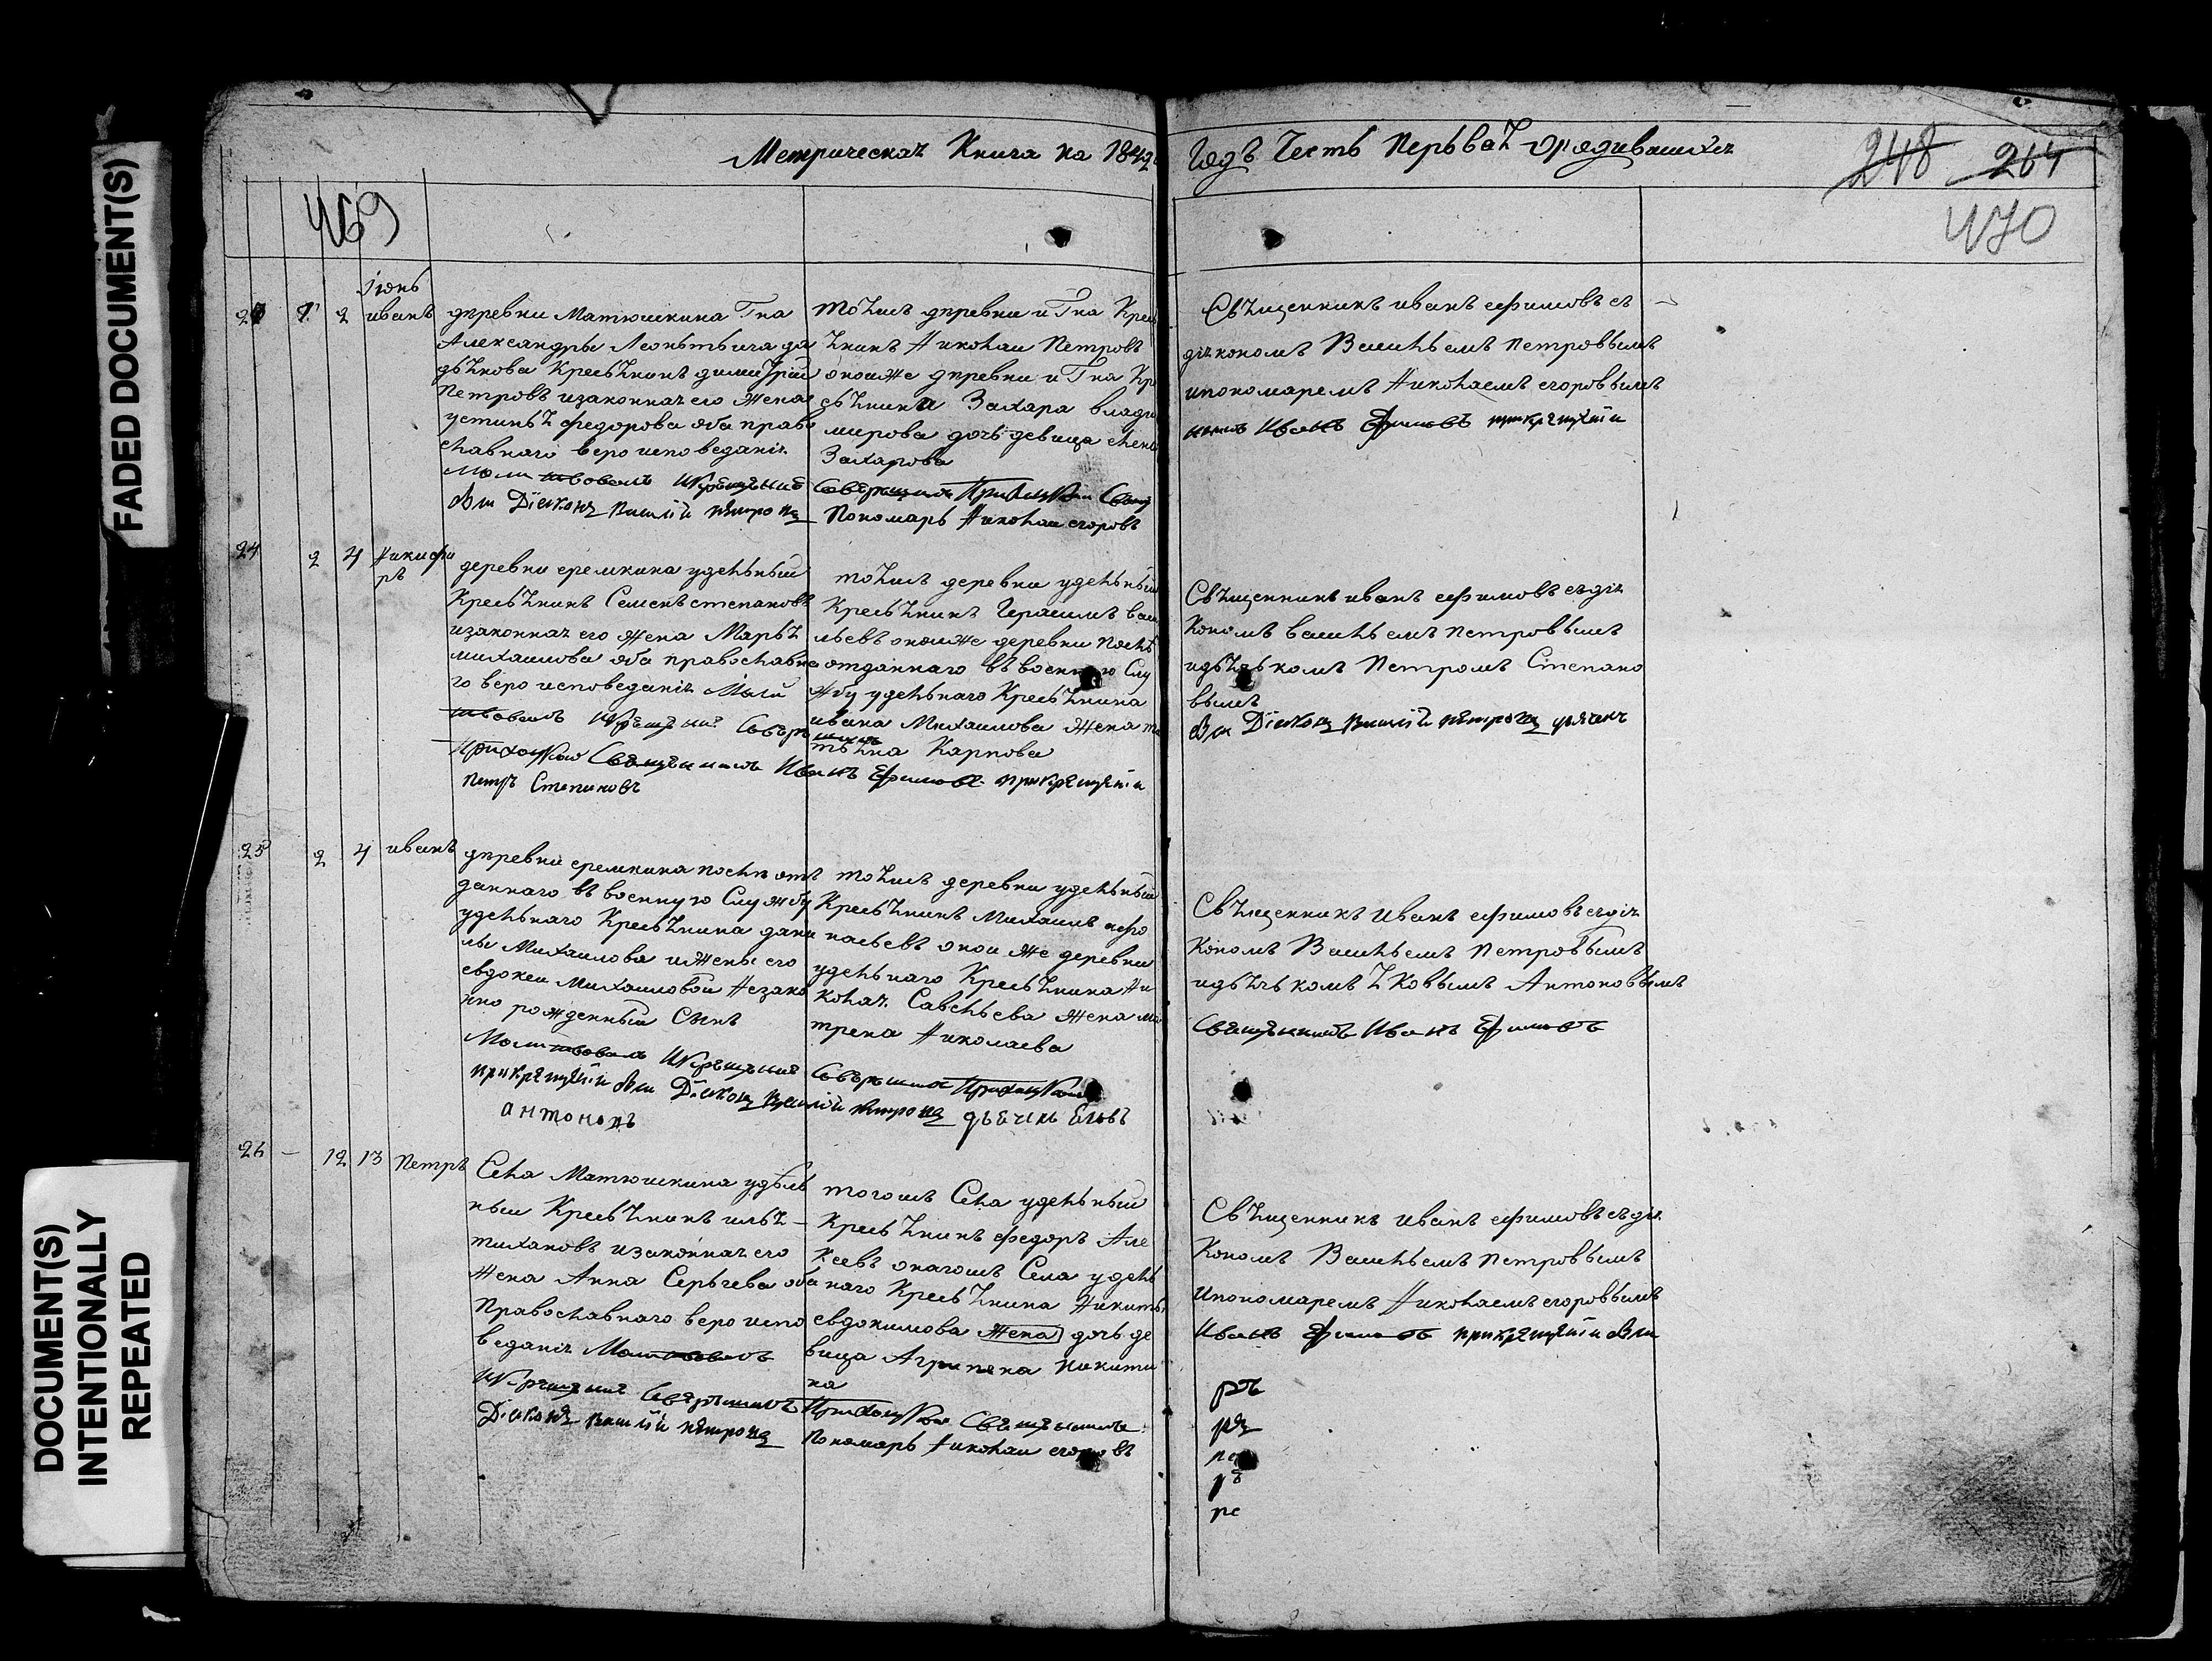 FADED DOCUMENT(S)
DOCUMENT(S)
INTENTIONALLY
REPEATED
Метрическаѧ Книга на 1842
Годъ Честь Перьваѧ ородившихсѧ
248 264
469
470
Iюнь
1 2 иванъ
деревни Матюшкина Гна
Александры Леоньтьича да
Кресьѧнинъ димитрій
Петровъ изаконнаѧ его Жена
устиньѧ федорова оба право
славнаго вероисповеданіѧ
Молитвовалъ Икрещеніе
Діаконъ Василій Петровъ
тоѧжъ деревни и Гна Кресь
ѧнинъ Николаи Петровъ
оноиже деревни и Гна Кре
сьѧнина Захара влади
мирова дочь девица елена
Захарова
Совершилъ Приходскои Свѧщ
Пономарь Николаи егоровъ
Свѧщенникъ иванъ ефимовъ съ
діѧкономъ Васильемъ Петровымъ
ипономаремъ Николаемъ егоровымъ
никъ Иванъ Ефимовъ прикрещеніи
24 2 4 Никифо
ръ
деревни еремкина удельный
Кресьѧнинъ Семенъ степановъ
изаконнаѧ его Жена Марьѧ
михаилова оба православна
го вероисповеданіѧ Моли
твовалъ Икрещеніе Совер
шилъ
Приходскои Свѧщенникъ Иванъ Ефимовъ прикрещеніи
Петръ Степановъ
тоѧжъ деревни удельный
Кресьѧнинъ Герасимъ васи
льевъ оноиже деревни послѣ
отданнаго въ военную Слу
жбу удельнаго Кресьѧнина
ивана Михаилова Жена та
тьѧна Карпова
Свѧщенникъ иванъ ефимовъ съдіѧ
кономъ васильемъ петровымъ
идьѧчкомъ Петромъ Степано
вымъ
Діаконъ Василій Петровъ дьячекъ
25 2 4 иванъ
деревни еремкина послѣ от
даннаго въ военную Службу
удельнаго Кресьѧнина дани
лы Михаилова иЖены его
евдокеи Михаиловои Незако
нно рожденный Сынъ
Молитвовалъ Икрещеніе Совершилъ Приходскои
прикрещеніи Діаконъ Василій Петровъ дьечекъ
антоновъ
тоѧжъ деревни удельный
Кресьѧнинъ Михаилъ афо
насьевъ оноиже деревни
удельнаго Кресьѧнина Ни
колаѧ Савельева Жена ма
трена Николаева
Свѧщенникъ Иванъ ефимовъ съдіѧ
кономъ Васильемъ Петровымъ
идьѧчькомъ ѧковымъ Антоновымъ
Свѧщенникъ Иванъ Ефимовъ
26 – 12 13 Петръ
Села Матюшкина удѣль
ныи Кресьѧнинъ ильѧ
тихановъ изаконнаѧ его
Жена Анна Серьгева оба
Православнаго вероиспо
веданіѧ Молитвовалъ
Икрещеніе Совершилъ Приходскои Свѧщенникъ
Діаконъ Василій Петровъ
тогожъ Села удельный
Кресьѧнинъ федоръ Але
кеевъ онагожъ Села удель
наго Кресьѧнина Никиты
евдокимова Жена дочь де
вица Агрипена Никити
на
Пономарь Николаи егоровъ
Свѧщенникъ иванъ ефимовъ съдіѧ
кономъ Васильемъ Петровымъ
Ипономаремъ Николаемъ егоровымъ
Иванъ Ефимовъ прикрещеніи